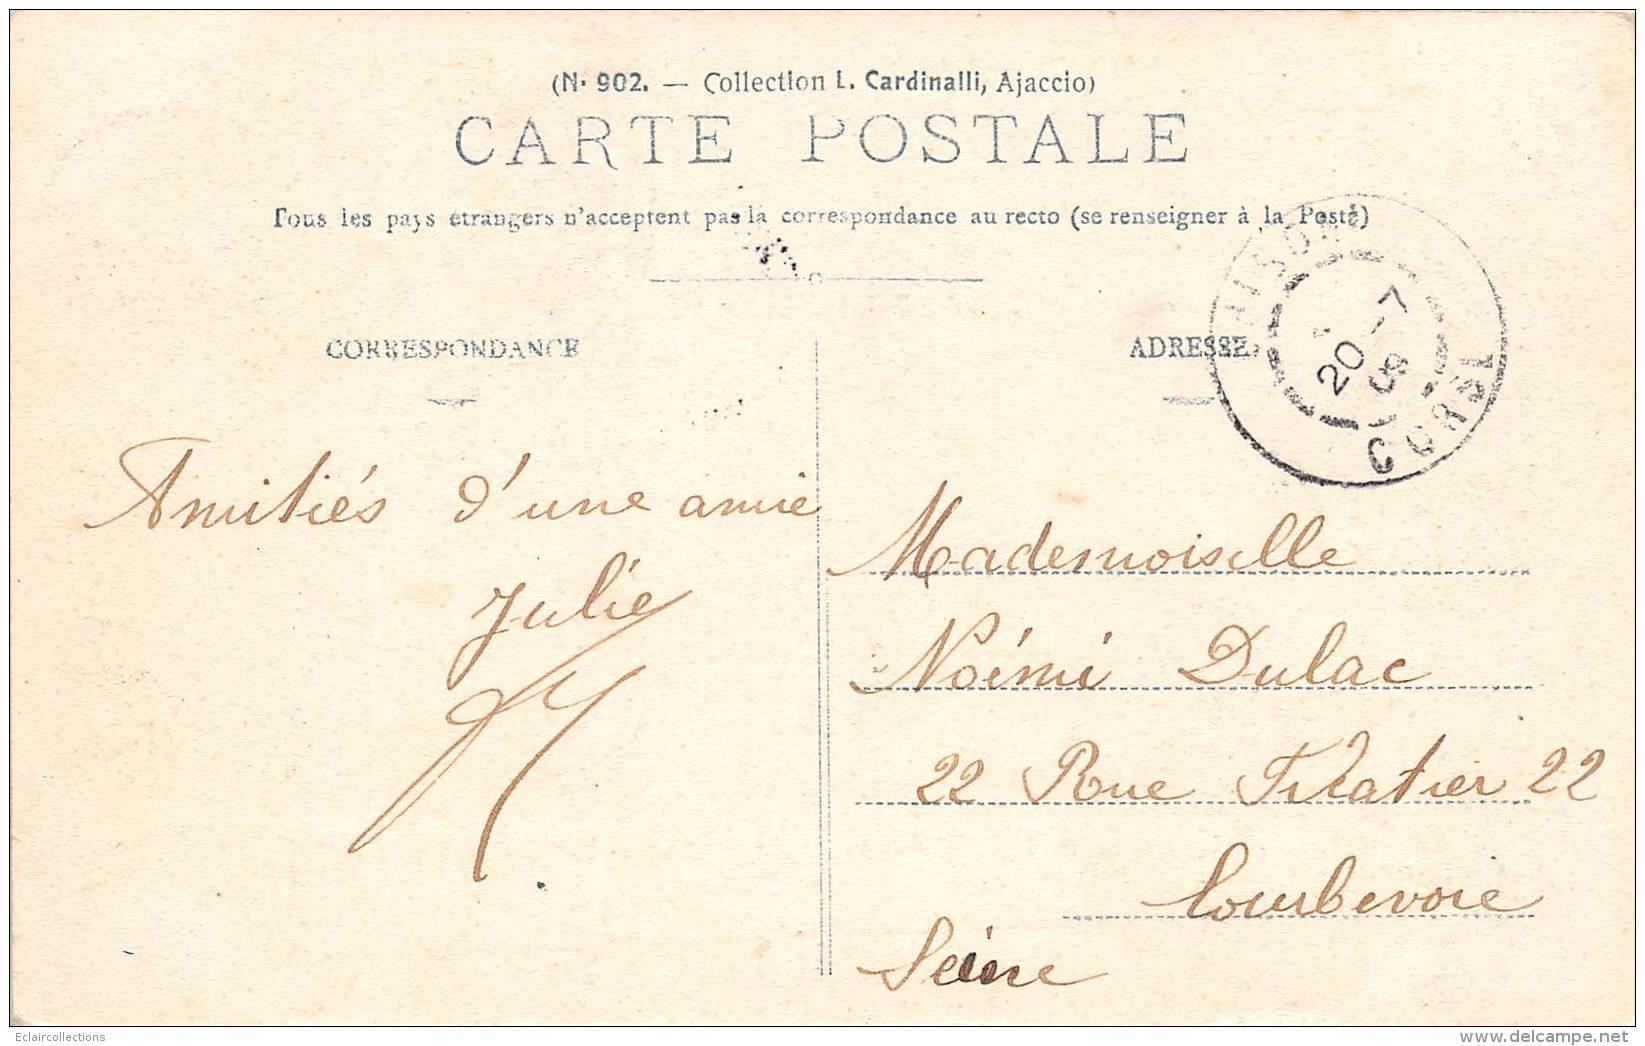 (N· 902. — Collection L. Cardinalli, Ajaccio)
CARTE POSTALE
Tous les pays etrangers n'acceptent pas la correspondance au recto (se renseigner à la Poste)
CORRESPONDANCE
ADRESSE
20 - 7
09
CORSE
Amitiés d'une amie
Julie
Mademoiselle
Noémi Dulac
22 Rue 22
Courbevoie
Seine
Eclaircollections
www.delcampe.net